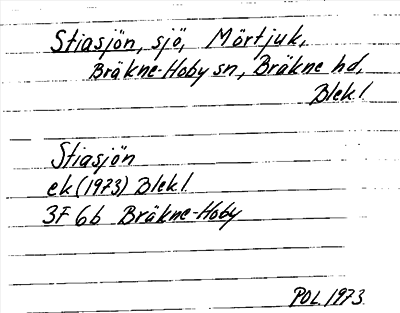 Stiasjön, sjö, Mörtjuk,
Bräkne-Hoby sn, Bräkne hd,
Blekl
Stiasjön
ek (1973) Blekl.
3F 6b Bräkne-Hoby
POL 1973.